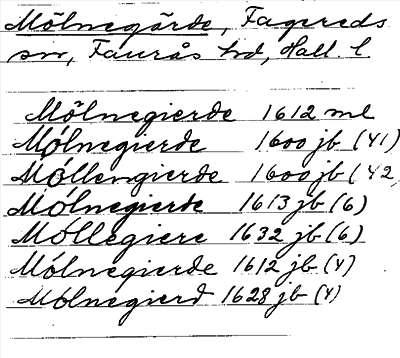 Mölnegärde, Fagereds
sn, Faurås hd, Hall. l
Mölnegierde 1612 ml
Mólnegierde 1600 jb (41)
Móllengierde 1600 jb (42
Mólnegierte 1613 jb (6)
Móllegiere 1632 jb (6)
Mólnegierde 1612 jb (4)
Mólnegierd 1628 jb (4)